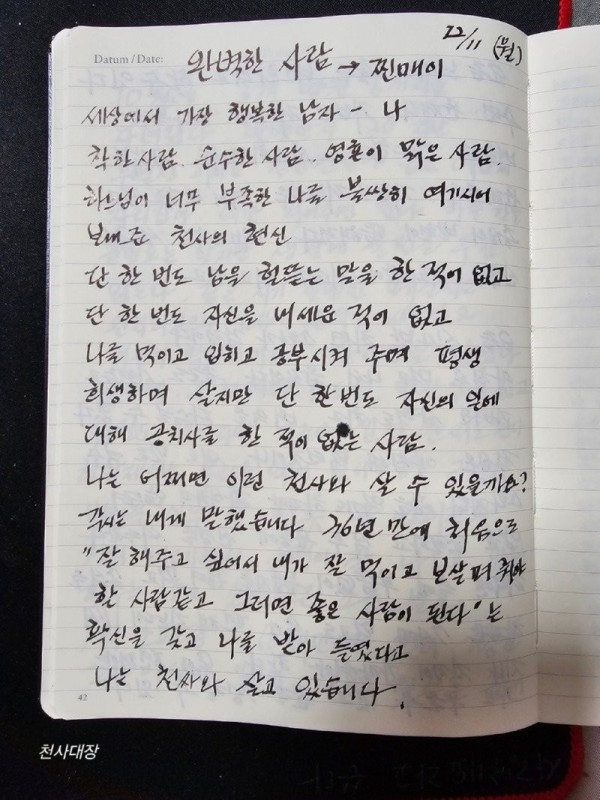 Datum / Date:
22/11 (월)
완벽한 사람 → 찐매이
세상에서 가장 행복한 남자 - 나
착한사람. 순수한 사람. 영혼이 맑은 사람.
하느님이 너무 부족한 나를 불쌍히 여기시어
보내준 천사의 현신
단 한 번도 남을 헐뜯는 말을 한 적이 없고
단 한 번도 자신을 내세운 적이 없고
나를 먹이고 입히고 공부시켜 주며 평생
희생하며 살지만 단 한번도 자신의 일에
대해 공치사를 한 적이 없는 사람.
나는 어쩌면 이런 천사와 살 수 있을까요?
각시는 내게 말했습니다 36년 만에 처음으로
"잘 해주고 싶어서 내가 잘 먹이고 보살펴 줘야
할 사람같고 그러면 좋은 사람이 된다"는
확신을 갖고 나를 받아 들였다고
나는 천사와 살고 있습니다.
42
천사대장